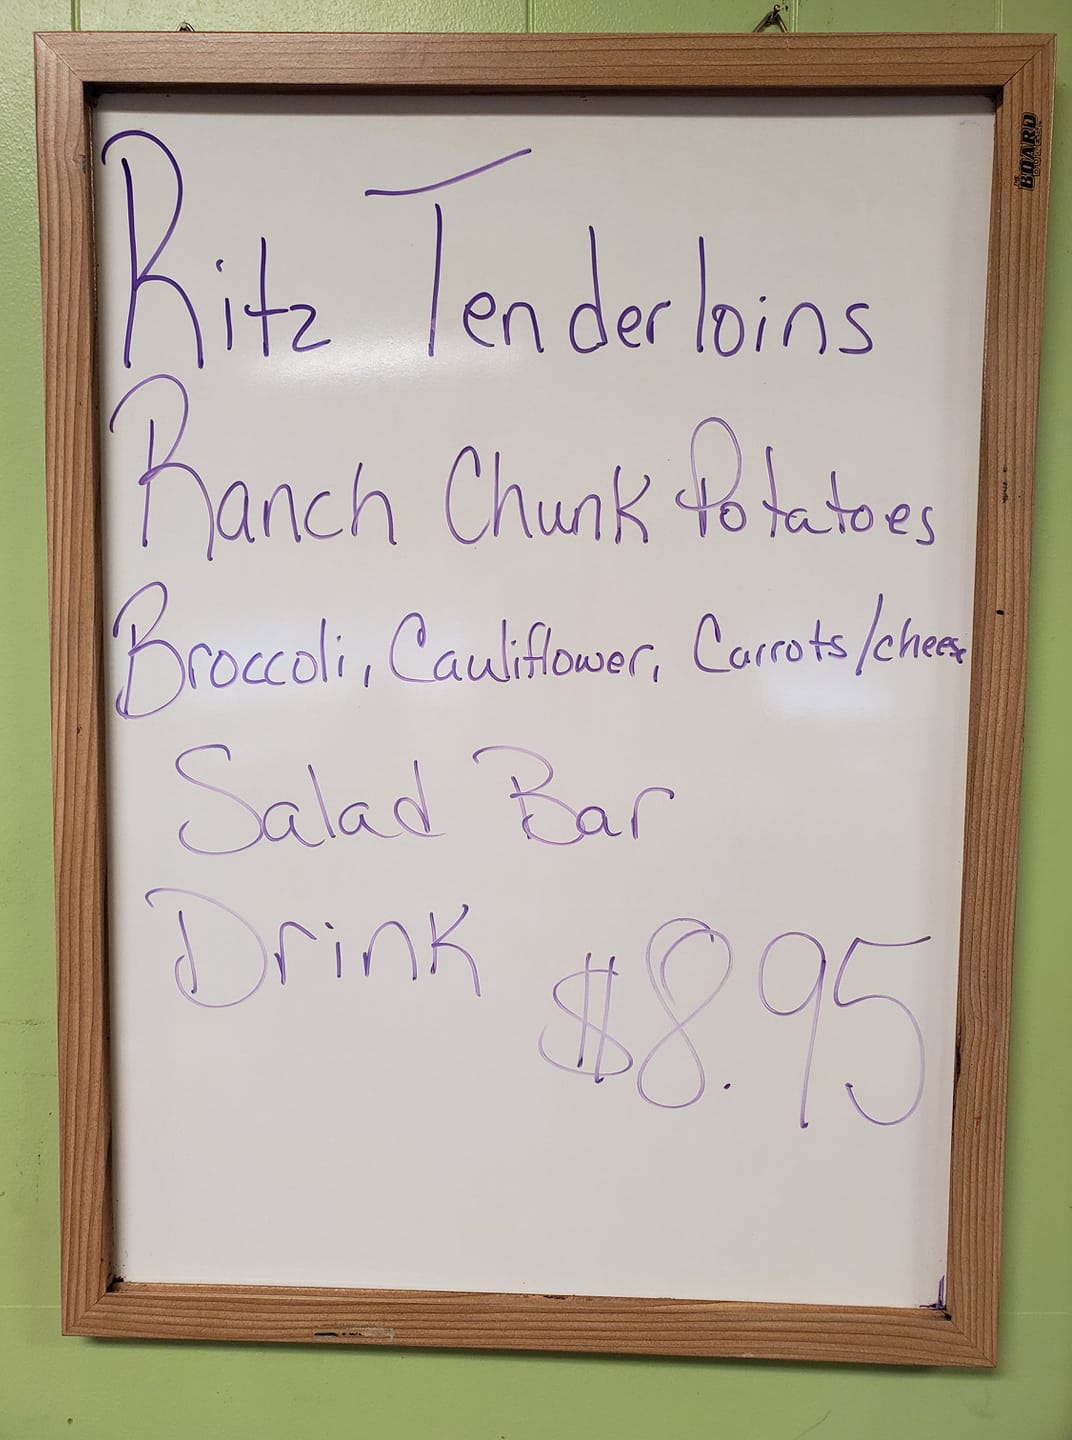 THE
BOARD
Ritz Tenderloins
Ranch Chunk Potatoes
Broccoli, Cauliflower, Carrots/cheese
Salad Bar
Drink
$8.95